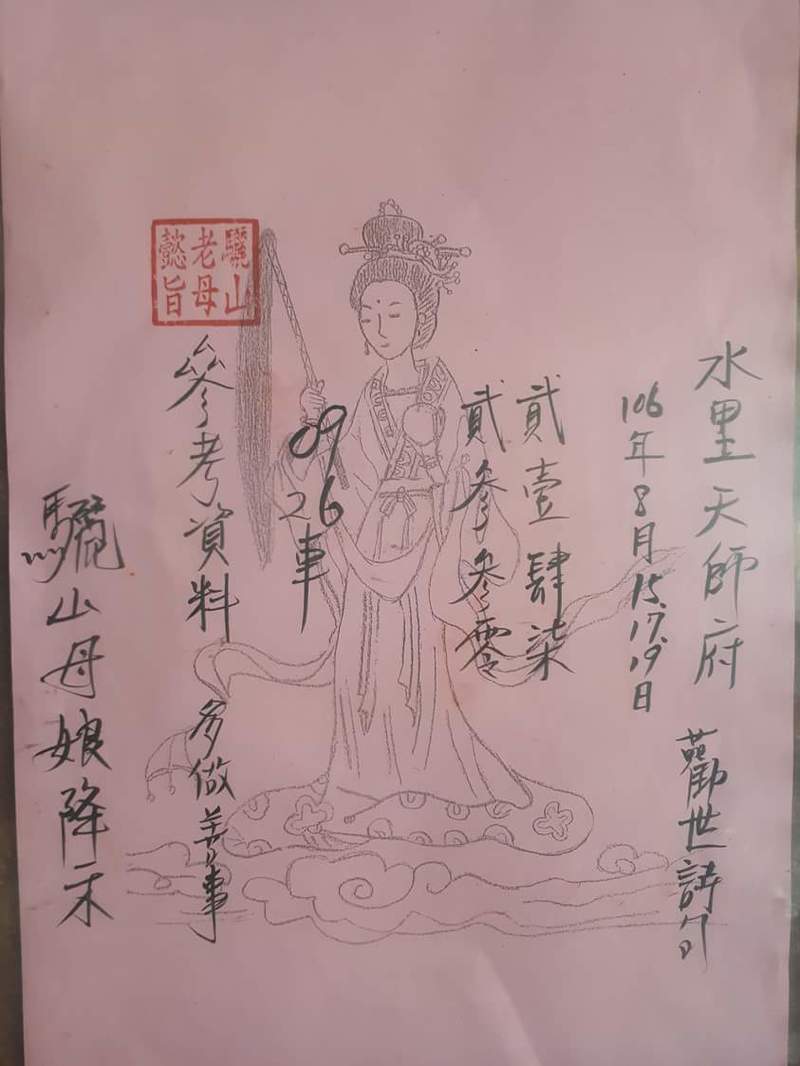 水里天師府 勸世詩句
106年8月15.17.19日
貳壹肆柒
貳參參零
09
26車
參考資料 多做善事
驪山老母懿旨
驪山母娘降示